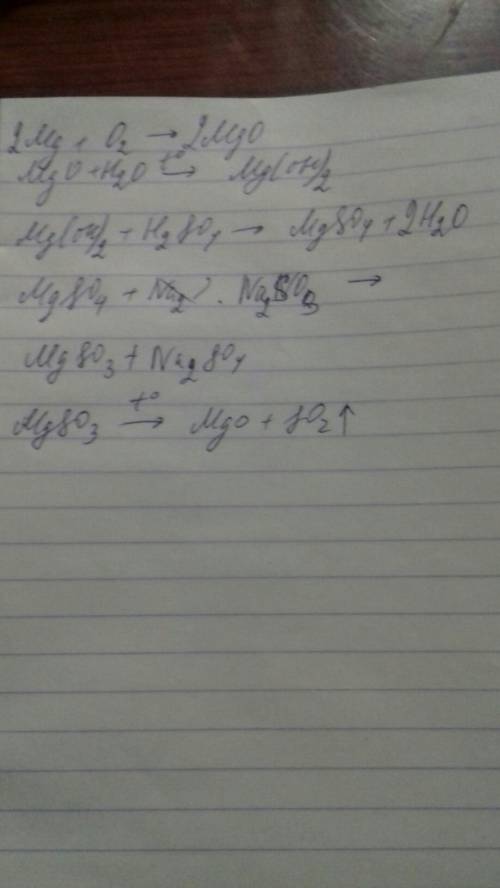 2Mg + O₂ → 2MgO
MgO + H₂O t°→ Mg(OH)₂
Mg(OH)₂ + H₂SO₄ → MgSO₄ + 2H₂O
MgSO₄ + Na₂SO₃ →
MgSO₃ + Na₂SO₄
MgSO₃ t°→ MgO + SO₂↑